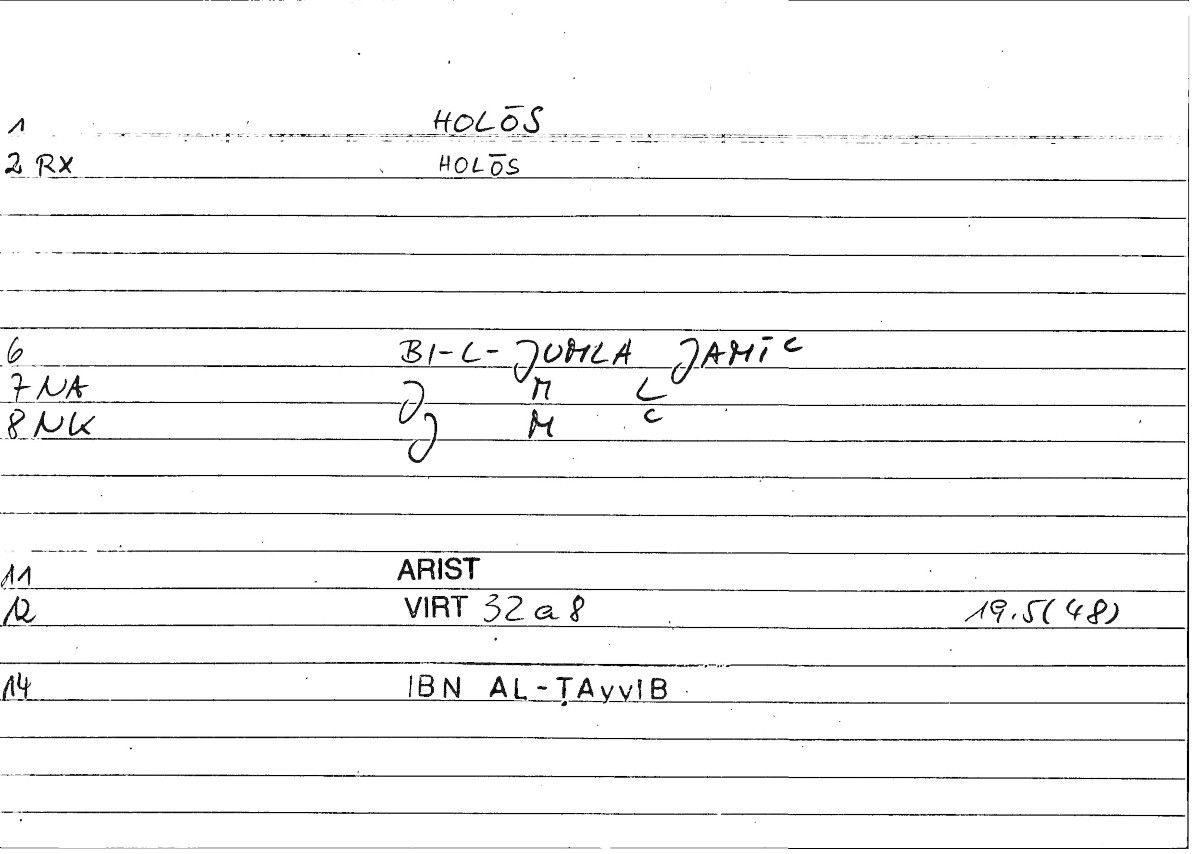 1 HOLŌS
2 RX HOLŌS
6 BI-L-JUMLA JAMĪc
7 NA J M L
8 NK J M c
11 ARIST
12 VIRT 32 a 8 19.5(48)
14 IBN AL-ṬAyyIB